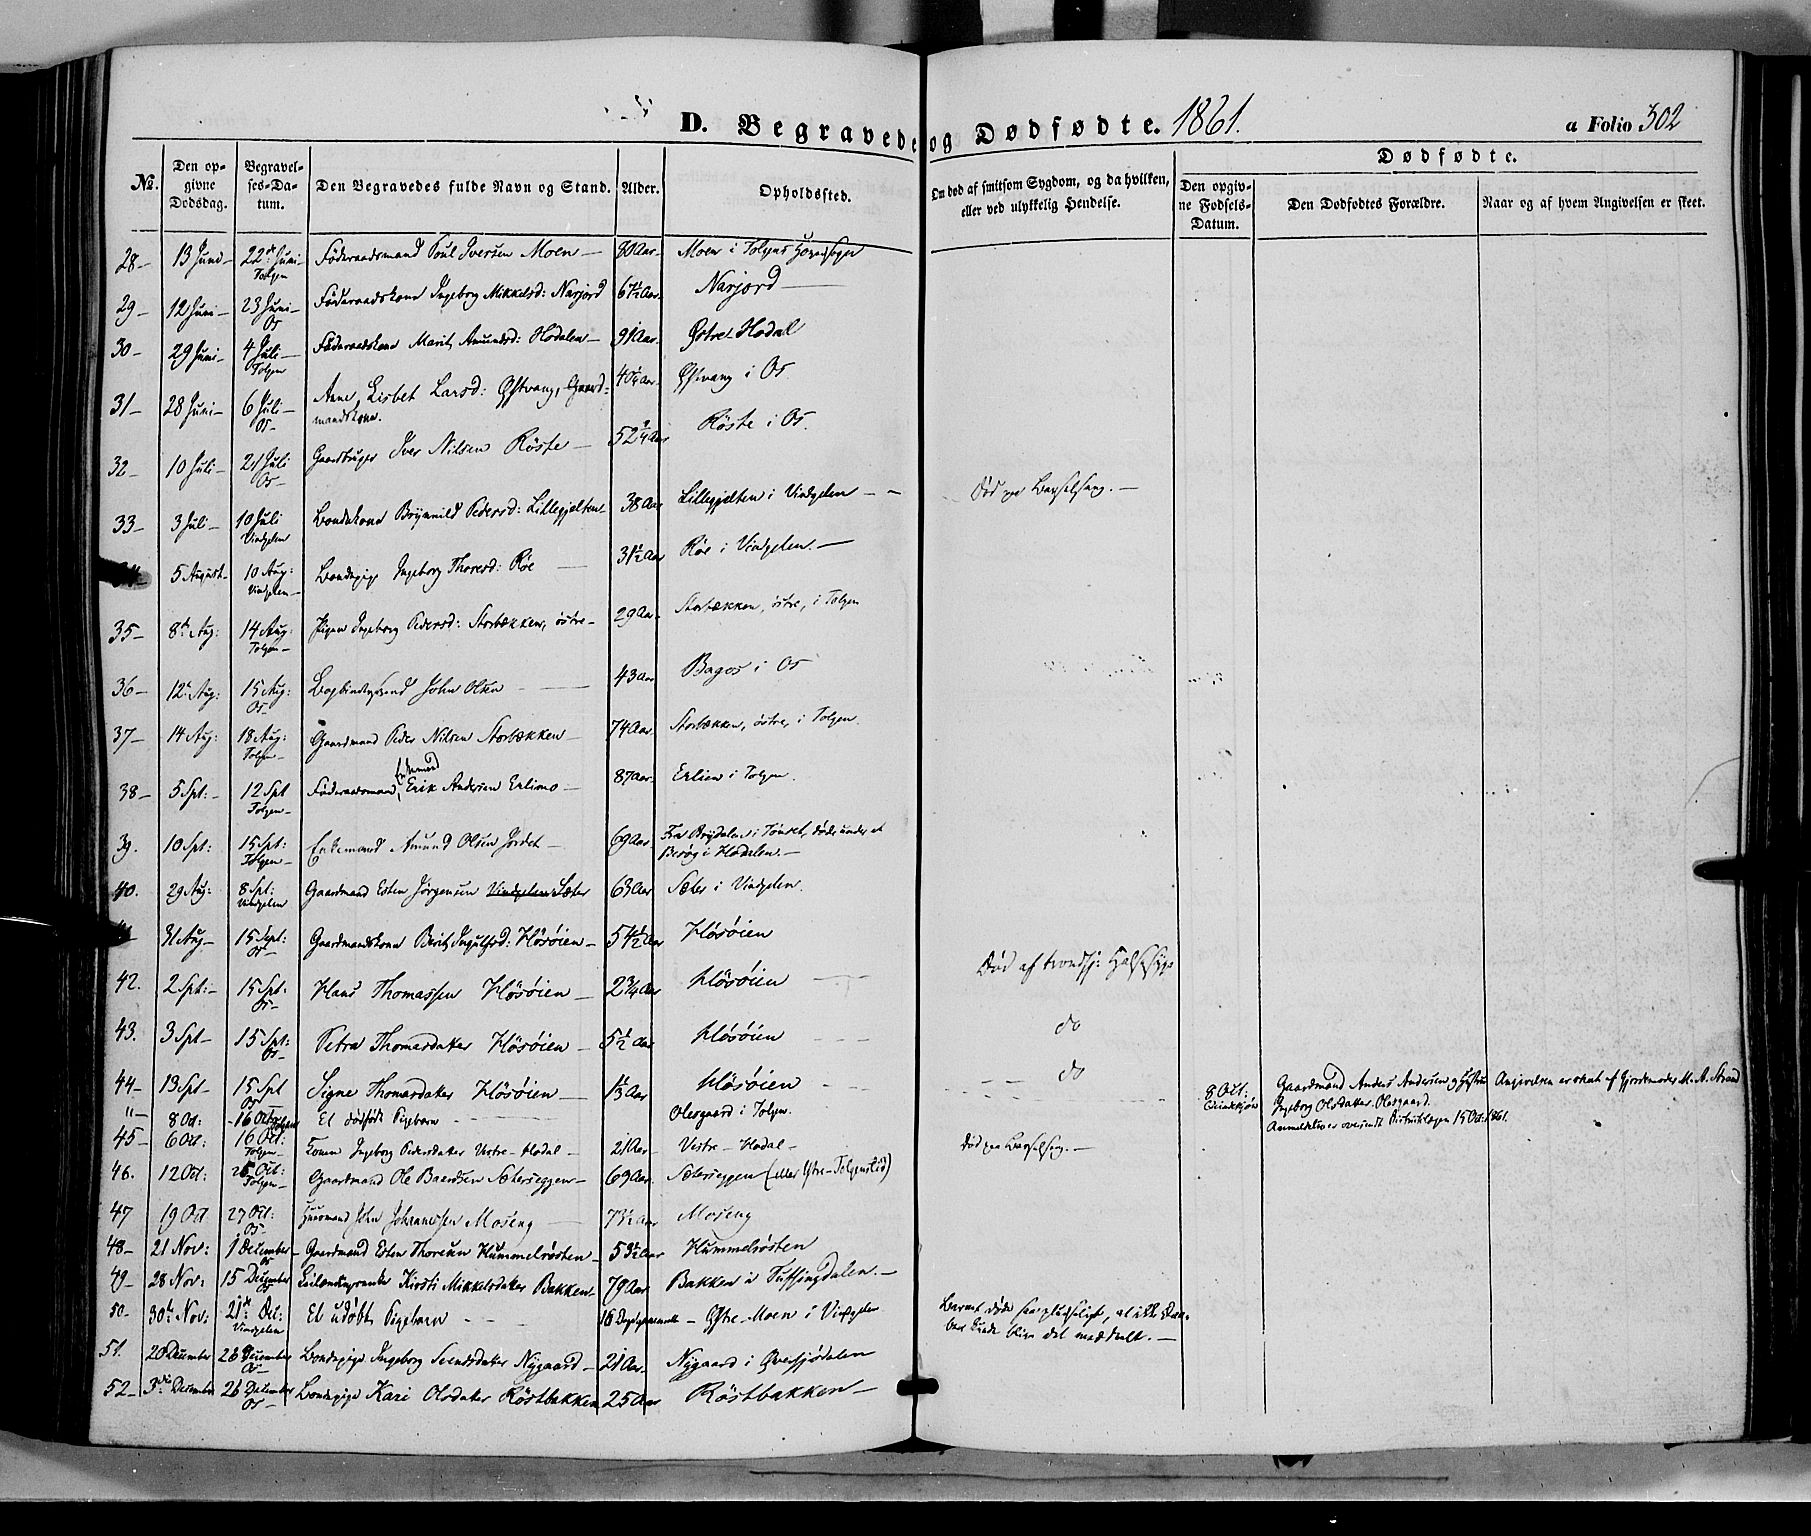 D. Begravede og Dødfødte. 1861. a Folio 302
No. Den opgivne Dødsdag. Begravelses-Datum. Den Begravedes fulde Navn og Stand. Alder. Opholdssted. Om død af smitsom Sygdom, og da hvilken, eller ved ulykkelig Hendelse. Dødfødte. Den opgivne Fødsels-Datum. Den Dødfødtes Forældre. Naar og af hvem Angivelsen er skeet.
28- 13 Juni- 22de Juni- Tolgen Føderaadsmand Poul Iversen Moen - 80 Aar- Moen i Tolgens
29- 12 Juni- 23 Juni- Os Føderaadskone Ingeborg Mikkelsd: Narjord 67½ Aar. Narjord
30- 29 Juni- 4 Juli- Tolgen Føderaadskone Marit Amundsd: Hodalen - 91 Aar. Østre-Hodal
31- 28 Juni- 6 Juli- Os- Anne Lisbet Larsd: Østvang, Gaard-
mandskone. 40¼ Aar. Østvang i Os.
32- 10 Juli- 21 Juli Os- Gaardbruger Iver Nilsen Röste - 52¼ Aar Röste i Os.
33- 3 Juli- 10 Juli Vindgelen Bondekone Brynnild Pedersd: Lillegjelten- 38 Aar Lillegjelten i Vindgelen - - Död paa Barselseng. -
5 August- 10 Aug: Vindgelen- Bondepige Ingeborg Thoresd: Röe - 31½ Aar Röe i Vindgelen. -
35- 8de Aug: 14 Aug: Tolgen- Pigen Ingeborg Pedersd: Storbækken, östre- 29 Aar- Storbækken, östre, i Tolgen
36- 12te Aug: 15 Aug: Os- John Olsen - 43 Aar Bagos i Os
37- 14 Aug: 18 Aug: Tolgen- Gaardmand Peder Nilsen Storbækken - 74 Aar. Storbækken, östre, i Tolgen.
38- 5 Spt:- 12 Spt Tolgen- Föderaadsmand, Enkemand Erik Andersen Erlimo - 87 Aar. Erlien i Tolgen.
39. 10 Spt: 15 Spt: Tolgen- Enkemand Amund Olsen Jordet - 69 Aar Fra Brydalen i Tönset, döde under et
Besög i Hodalen. -
40. 29 Aug: 8 Spt: Vindgelen Gaardmand Esten Jörgensen Vindgelen Sæter 63 Aar Sæter i Vindgelen.
31 Aug- 15 Sept: Os- Gaardmandskone Berit Ingulfsd: Höröien- 54½ Aar Höröien
42. 2 Spt:- 15 Spt: Os- Hans Thomassen Höröien - 2¾ Aar Höröien - Död af ondsj: Halssyge
43. 3 Spt- 15 Spt: Os- Petra Thomasdater Höröien - 5½ Aar Höröien - do
44- 13 Spt- 15 Spt Os Signe Thomasdater Höröien - 1½ Aar Höröien - do
"- 8 Oct: - 16 Octbr Tolgen Et dödfödt Pigebarn - Olesgaard i Tolgen. 8 Oct. Qvindekjøn Gaardmand Anders Andersen og Hustru
Ingeborg Olsdatter Olesgaard. Angivelsen er skeet af Gjordemoder M. A. Strand
Anmeldelse oversendt Distriktslægen 15 Oct: 1861.
45- 6 Oct: 16 Oct: Tolgen- Konen Ingeborg Pedersdater Vestre-Hodal - 21 Aar- Vestre-Hodal - död paa Barselseng. -
46. 12 Oct: 25 Oct: Tolgen- Gaardmand Ole Baardsen Sæterseggen- 69 Aar. Sæterseggen (eller Østre-Tolgenslid)
47 19 Oct 27 Oct: Os- Huusmand John Johannessen Moseng - 73½ Aar Moseng
48- 21 Nov: 1 December- Os Gaardmand Esten Thoresen Hummelvösten- 53½ Aar Hummelvösten
49- 28 Nov: 15 December Os Leilændingsenke Kirsti Mikkelsdater Bakken- 79 Aar. Bakken i Tuffsingdalen. -
50- 30te Nov: 21de Dec: Vindgelen Et udöbt Pigebarn - 16 Dage gammelt - Østre-Moen i Vindgelen Barnet döde saa pludseligt, at ikke Daa-
ben kunde blive det meddeelt. -
51. 20 December 26 December Os- Bondepige Ingeborg Svendsdater Nygaard - 21 Aar. Nygaard i Øversjödalen
52- 3die December 26 December Os- Bondepige Kari Olsdater Röstbakken 25 Aar Röstbakken -